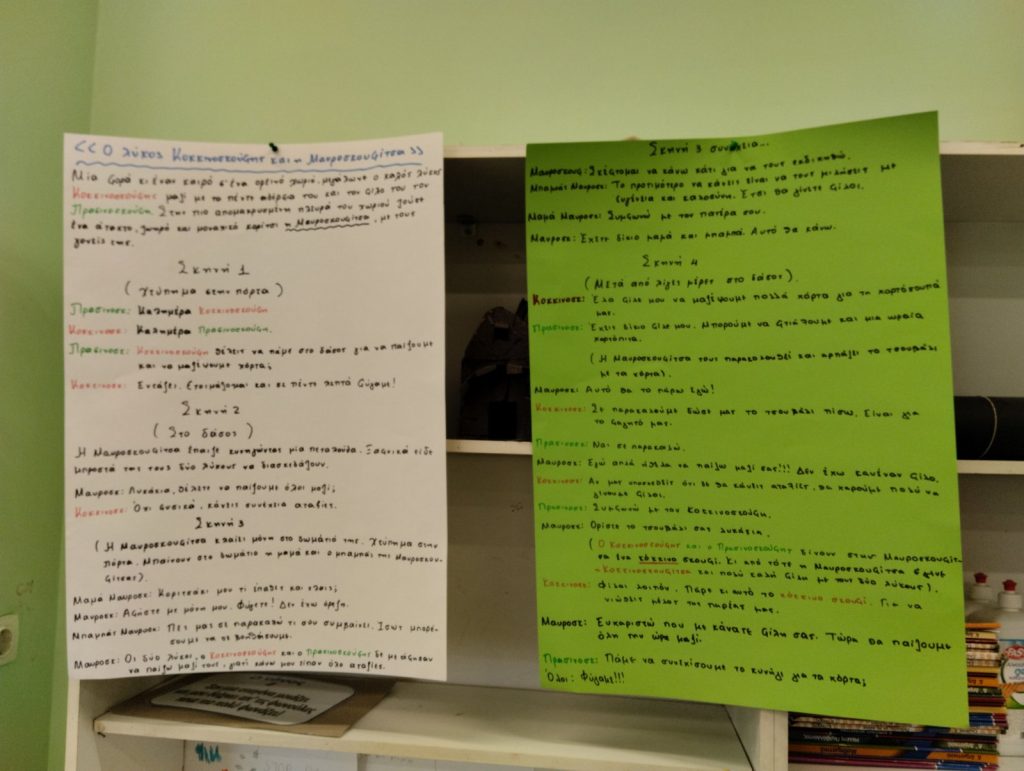 << Ο λύκος Κοκκινοσκούφης και η Μαυροσκουφίτσα >>
Μια φορά κι έναν καιρό σ'ένα ορεινό χωριό, μεγάλωνε ο καλός λύκος
Κοκκινοσκούφης μαζί με τα πέντε αδέρφια του και τον φίλο του τον
Πρασινοσκούφη. Στην πιο απομακρυσμένη πλευρά του χωριού ζούσε
ένα άτακτο, ζωηρό και μοναχικό κορίτσι η Μαυροσκουφίτσα, με τους
γονείς της.
Σκηνή 1
(Χτύπημα στην πόρτα)
Πρασινοσκ: Καλημέρα Κοκκινοσκούφη
Κοκκινοσκ: Καλημέρα Πρασινοσκούφη.
Πρασινοσκ: Κοκκινοσκούφη θέλεις να πάμε στο δάσος για να παίξουμε
και να μαζέψουμε χόρτα;
Κοκκινοσκ: Εντάξει. Ετοιμάζομαι και σε πέντε λεπτά φύγαμε!
Σκηνή 2
(Στο δάσος)
Η Μαυροσκουφίτσα έπαιζε κυνηγώντας μία πεταλούδα. Ξαφνικά είδε
μπροστά της τους δύο λύκους να διασκεδάζουν.
Μαυροσκ: Λυκάκια, θέλετε να παίξουμε όλοι μαζί;
Κοκκινοσκ: Όχι φυσικά, κάνεις συνέχεια αταξίες.
Σκηνή 3
(Η Μαυροσκουφίτσα κλαίει μόνη στο δωμάτιό της. Χτύπημα στην
πόρτα. Μπαίνουν στο δωμάτιο η μαμά και ο μπαμπάς της Μαυροσκου-
φίτσας).
Μαμά Μαυροσκ: Κοριτσάκι μου τι έπαθες και κλαις;
Μαυροσκ: Αφήστε με μόνη μου. Φύγετε! Δεν έχω όρεξη.
Μπαμπάς Μαυροσκ: Πες μας σε παρακαλώ τι σου συμβαίνει. Ίσως μπορέ-
σουμε να σε βοηθήσουμε.
Μαυροσκ: Οι δύο λύκοι, ο Κοκκινοσκούφης και ο Πρασινοσκούφης δε με άφησαν
να παίξω μαζί τους, γιατί κάνω μου είπαν όλο αταξίες.
Σκηνή 3 συνέχεια...
Μαυροσκουφ: Σκέφτομαι να κάνω κάτι για να τους εκδικηθώ.
Μπαμπάς Μαυροσκ: Το προτιμότερο να κάνεις είναι να τους μιλήσεις με
ευγένεια και καλοσύνη. Έτσι θα γίνετε φίλοι.
Μαμά Μαυροσκ: Συμφωνώ με τον πατέρα σου.
Μαυροσκ: Έχετε δίκιο μαμά και μπαμπά. Αυτό θα κάνω.
Σκηνή 4
(Μετά από λίγες μέρες στο δάσος).
Κοκκινοσκ: Έλα φίλε μου να μαζέψουμε πολλά χόρτα για τη χορτόσουπά
μας.
Πρασινοσκ: Έχεις δίκιο φίλε μου. Μπορούμε να φτιάξουμε και μια ωραία
χορτόπιτα.
(Η Μαυροσκουφίτσα τους παρακολουθεί και αρπάζει το τσουβάλι
με τα χόρτα).
Μαυροσκ: Αυτό θα το πάρω εγώ!
Κοκκινοσκ: Σε παρακαλούμε δώσε μας το τσουβάλι πίσω. Είναι για
το φαγητό μας.
Πρασινοσκ: Ναι σε παρακαλώ.
Μαυροσκ: Εγώ απλά ήθελα να παίξω μαζί σας!!! Δεν έχω κανέναν φίλο.
Κοκκινοσκ: Αν μας υποσχεθείς ότι δε θα κάνεις αταξίες, θα χαρούμε πολύ να
γίνουμε φίλοι.
Πρασινοσκ: Συμφωνώ με τον Κοκκινοσκούφη.
Μαυροσκ: Ορίστε το τσουβάλι σας λυκάκια.
(Ο Κοκκινοσκούφης και ο Πρασινοσκούφης δίνουν στην Μαυροσκουφίτ-
σα ένα κόκκινο σκουφί. Κι από τότε η Μαυροσκουφίτσα έγινε
Κοκκινοσκουφίτσα και πολύ καλή φίλη με τους δύο λύκους).
Κοκκινοσκ: Φίλοι λοιπόν. Πάρε κι αυτό το κόκκινο σκουφί. Για να
νιώθεις μέλος της παρέας μας.
Μαυροσκ: Ευχαριστώ που με κάνατε φίλη σας. Τώρα θα παίζουμε
όλη την ώρα μαζί.
Πρασινοσκ: Πάμε να συνεχίσουμε το κυνήγι για τα χόρτα;
Όλοι: Φύγαμε!!!